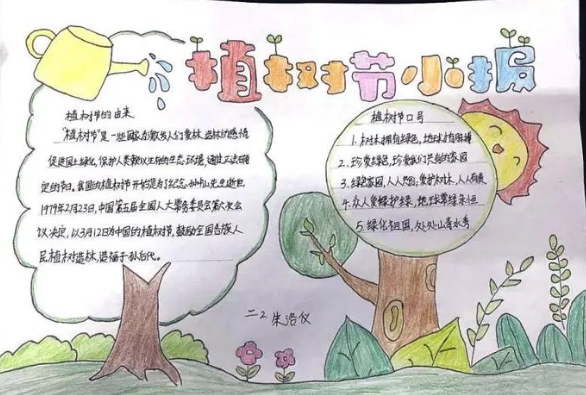 植树节小报
植树节的由来
"植树节"是一些国家激发人们爱林、造林的感情
促进国土绿化,保护人类赖以生存的生态环境,通过立法确
定的节日。我国的植树节开始是为了纪念孙中山先生逝世。
1979年2月23日,中国第五届全国人大常务委员会第六次会
议决定,以3月12日为中国的植树节,鼓励全国各族人
民植树造林,造福子孙后代。
植树节口号
1.树木拥有绿色,地球才有脉搏
2.珍爱绿色,珍爱我们共有的家园
3.绿色家园,人人共创,爱护树木,人人有责
4.众人爱绿护绿,地球常绿永恒
5.绿化祖国,处处山青水秀
二2 朱浩仪